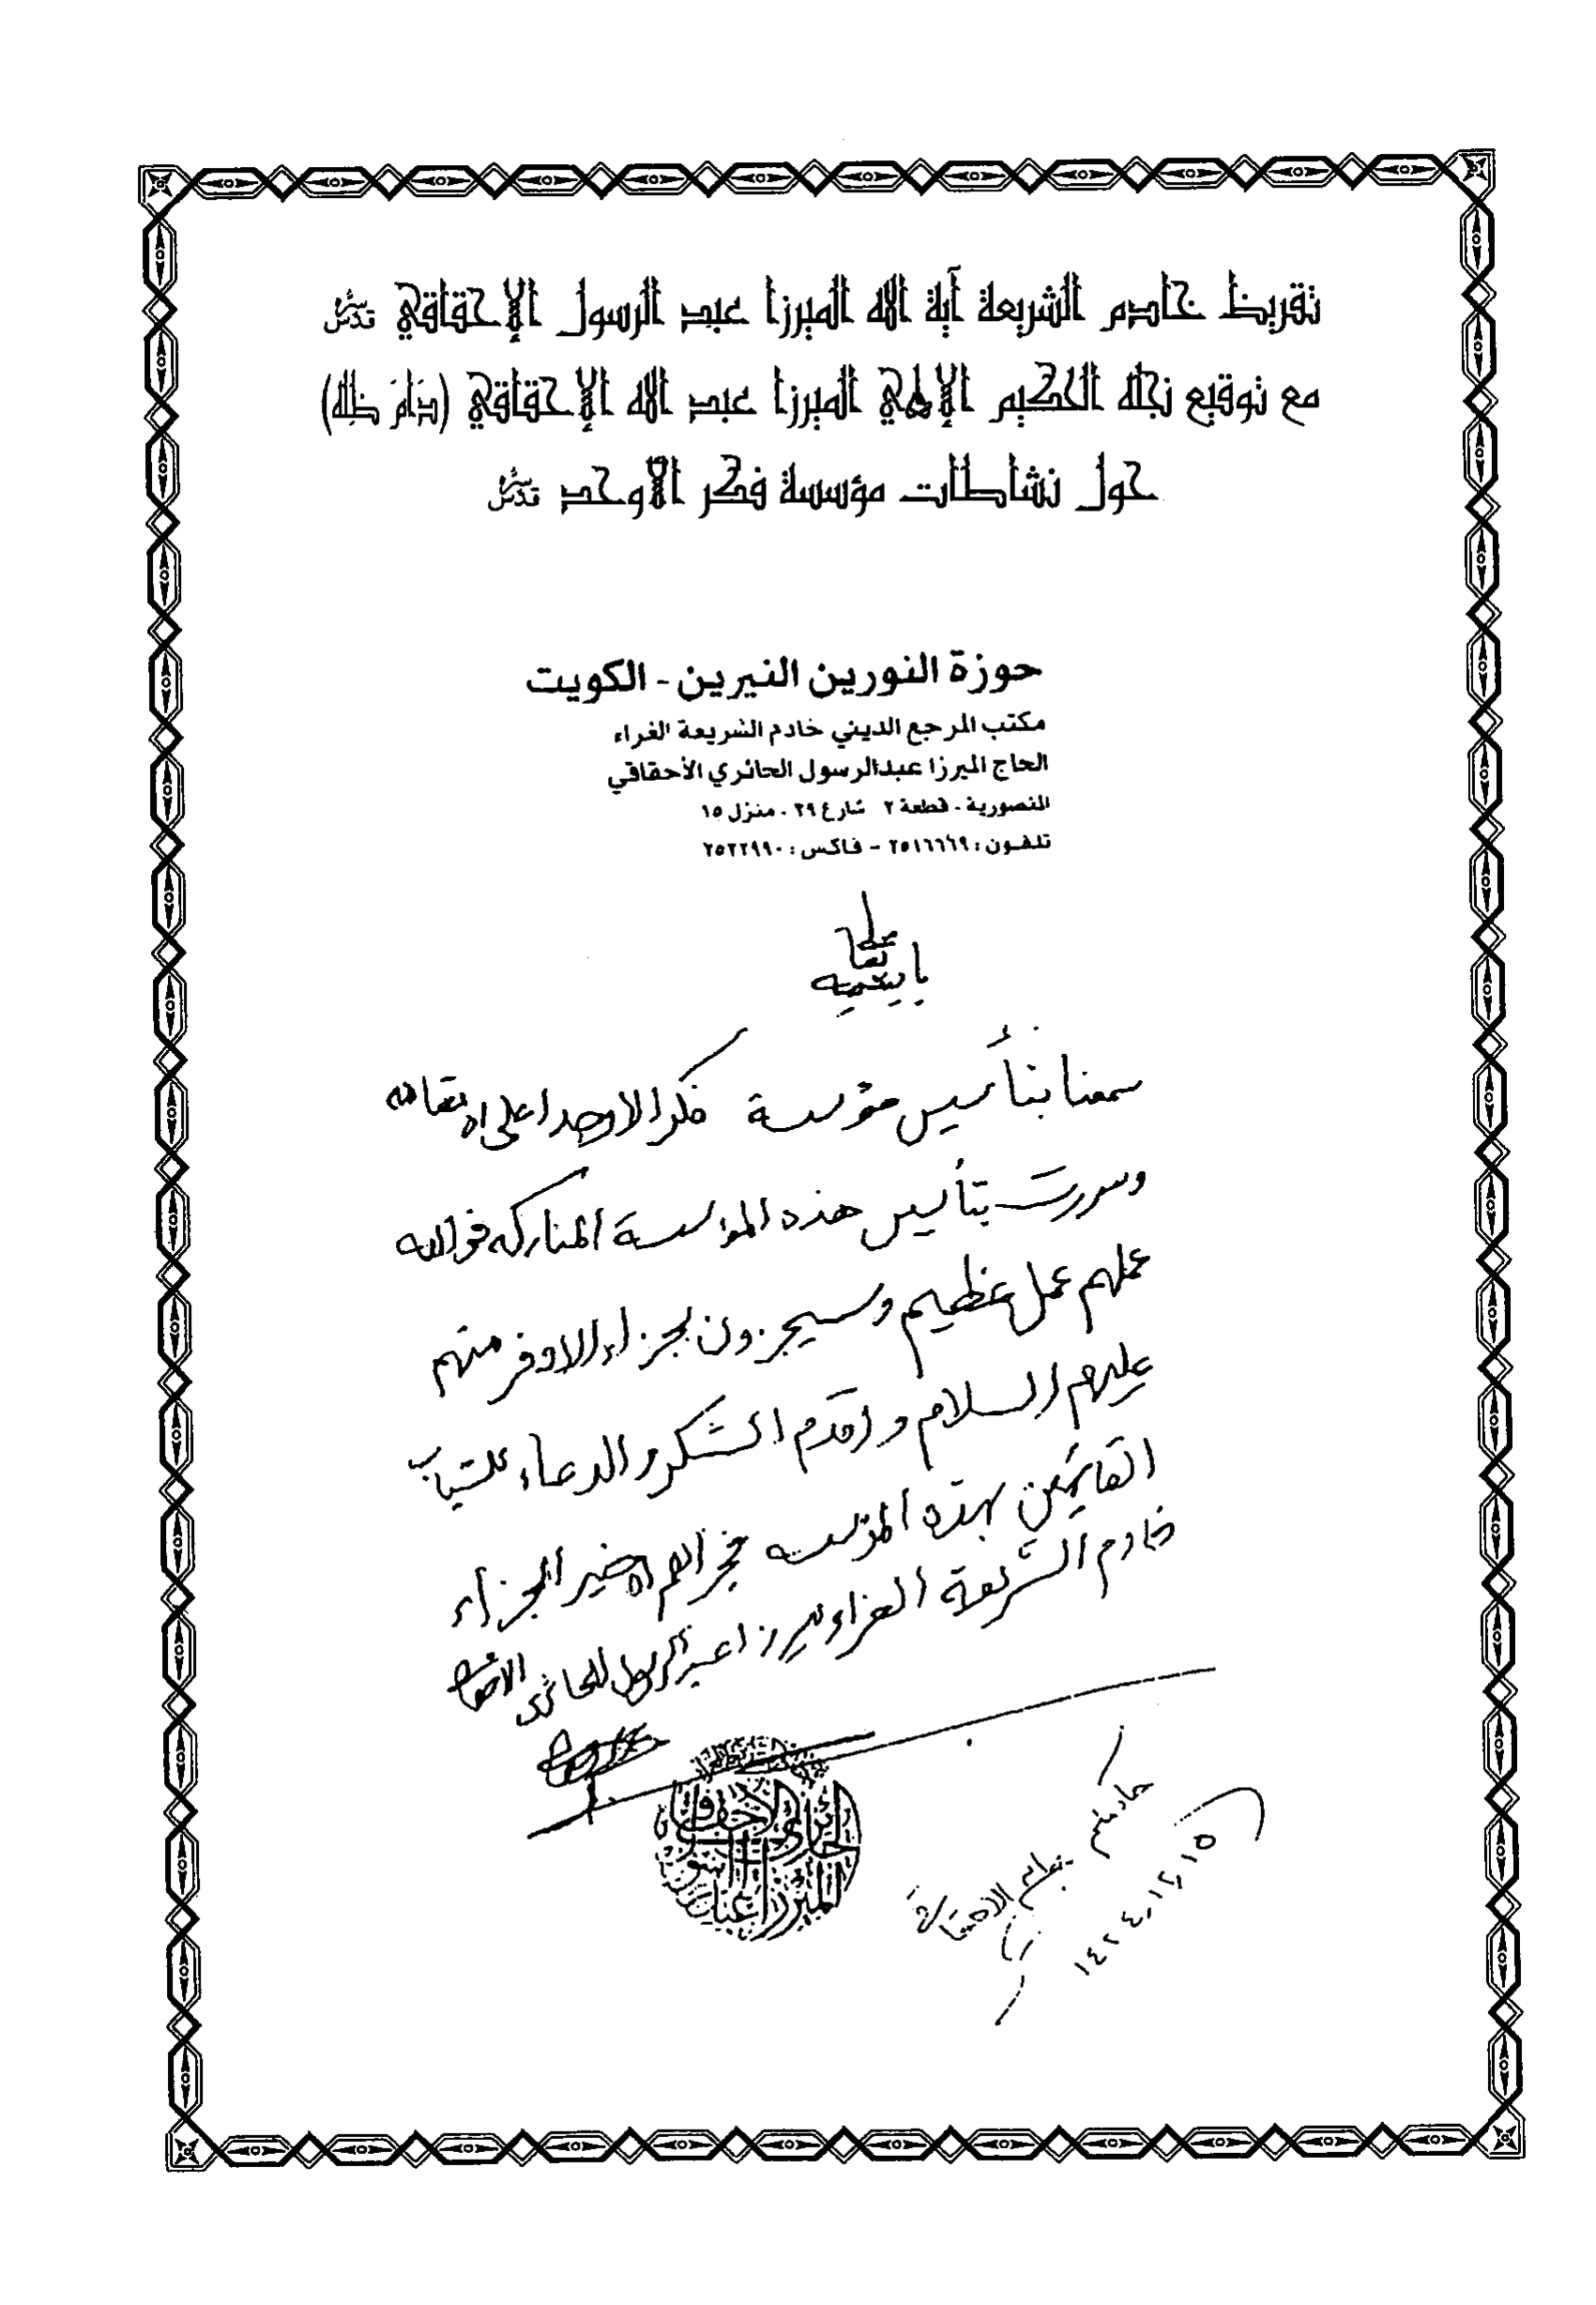 تقريظ خادم الشريعة آية الله الميرزا عبد الرسول الإحقاقي قدس سره
مع توقيع نجله الحكيم الإلهي الميرزا عبد الله الإحقاقي (دَامَ ظِلّه)
حول نشاطات مؤسسة فكر الأوحد قدس سره
حوزة النورين النيرين - الكويت
مكتب المرجع الديني خادم الشريعة الغراء
الحاج الميرزا عبدالرسول الحائري الأحقاقي
المنصورية - قطعة ٢ شارع ٢٩ - منزل ١٥
تلفون : ٢٥١٦٦٦٩ - فاكس : ٢٥٢٢٩٩٠
باسمه تعالى
سمعنا بتأسيس مؤسسة فكر الاوحد اعلى الله مقامه
وسررت بتأسيس هذه المؤسسة المباركه فوالله
عملهم عمل عظيم وسيجزون بجزاء الاوفر منهم
عليهم السلام و اقدم الشكر و الدعاء للشباب
القائمين بهذه المؤسسه فجزاهم الله خير الجزاء
خادم الشريعة الغراء ميرزا عبدالرسول الحائري الاحقاقي
خادمكم
عبدالله الاحقاقي
١٤٢٤,١٢,١٥
الحائري الاحقاقي
الميرزا عبدالرسول